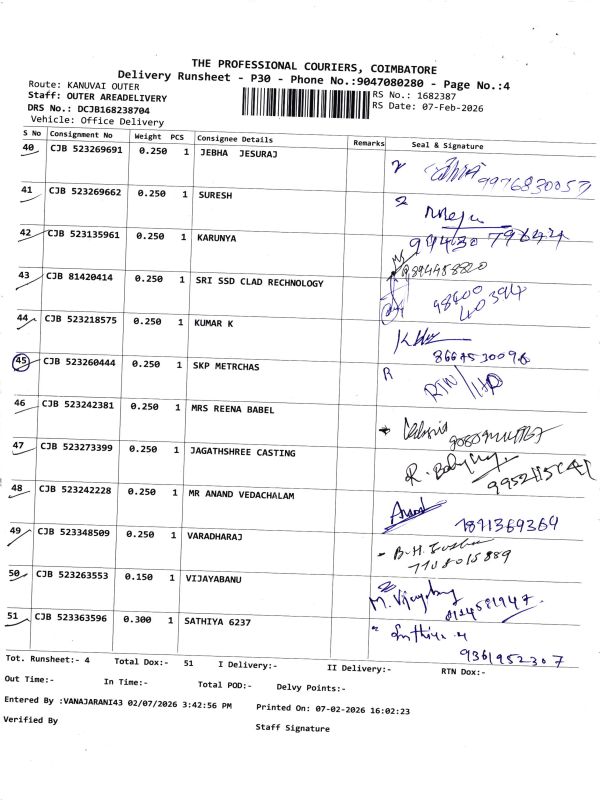 THE PROFESSIONAL COURIERS, COIMBATORE
Delivery Runsheet - P30 - Phone No.:9047080280 - Page No.:4
Route: KANUVAI OUTER
Staff: OUTER AREADELIVERY
DRS No.: DCJB168238704
Vehicle: Office Delivery
RS No.: 1682387
RS Date: 07-Feb-2026
S No Consignment No Weight PCS Consignee Details Remarks Seal & Signature
40 CJB 523269691 0.250 1 JEBHA JESURAJ
41 CJB 523269662 0.250 1 SURESH
42 CJB 523135961 0.250 1 KARUNYA
43 CJB 81420414 0.250 1 SRI SSD CLAD RECHNOLOGY
98400
40394
44 CJB 523218575 0.250 1 KUMAR K
45 CJB 523260444 0.250 1 SKP METRCHAS R RTN/HD
46 CJB 523242381 0.250 1 MRS REENA BABEL
47 CJB 523273399 0.250 1 JAGATHSHREE CASTING
48 CJB 523242228 0.250 1 MR ANAND VEDACHALAM Anand
49 CJB 523348509 0.250 1 VARADHARAJ
50 CJB 523263553 0.150 1 VIJAYABANU
51 CJB 523363596 0.300 1 SATHIYA 6237
9361952307
Tot. Runsheet:- 4 Total Dox:- 51 I Delivery:- II Delivery:- RTN Dox:-
Out Time:- In Time:- Total POD:- Delvy Points:-
Entered By :VANAJARANI43 02/07/2026 3:42:56 PM Printed On: 07-02-2026 16:02:23
Verified By Staff Signature